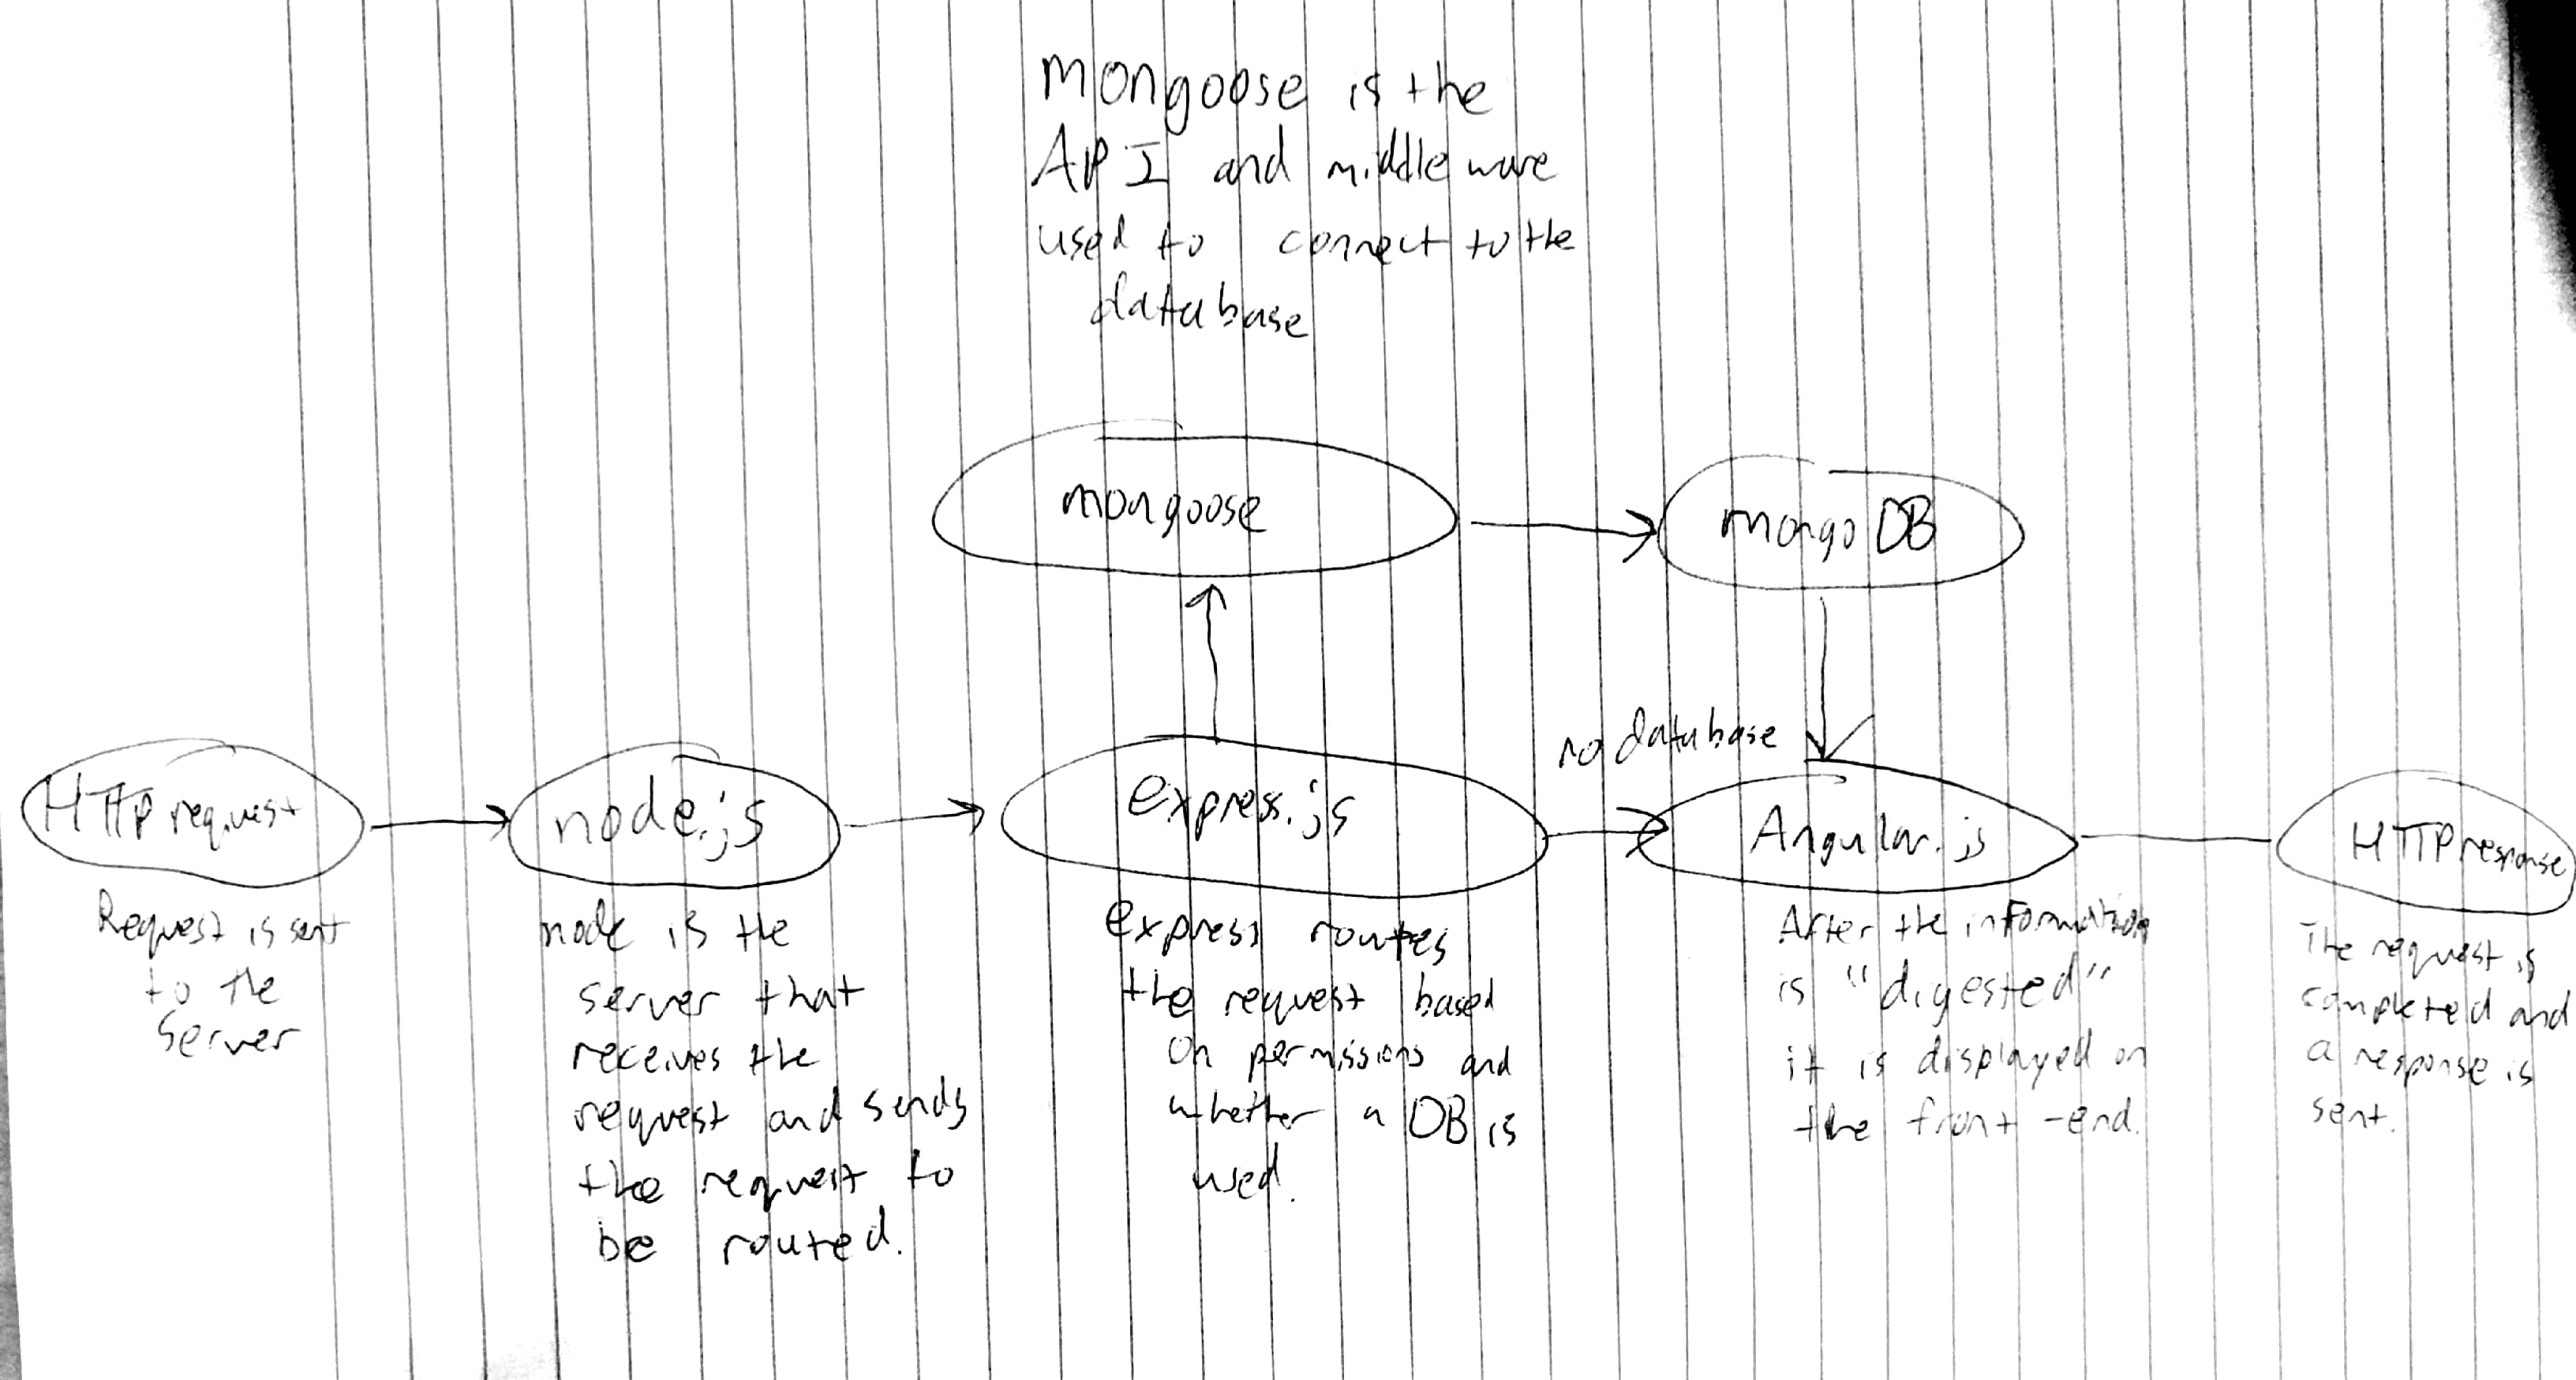 mongoose is the
API and middleware
used to connect to the
database
mongoose
mongoDB
no database
HTTP request
node.js
express.js
Angular.js
HTTP response
Request is sent
to the
Server
node is the
server that
receives the
request and sends
the request to
be routed.
express routes
the request based
on permissions and
whether a DB is
used.
After the information
is "digested"
it is displayed on
the front-end.
The request is
completed and
a response is
sent.